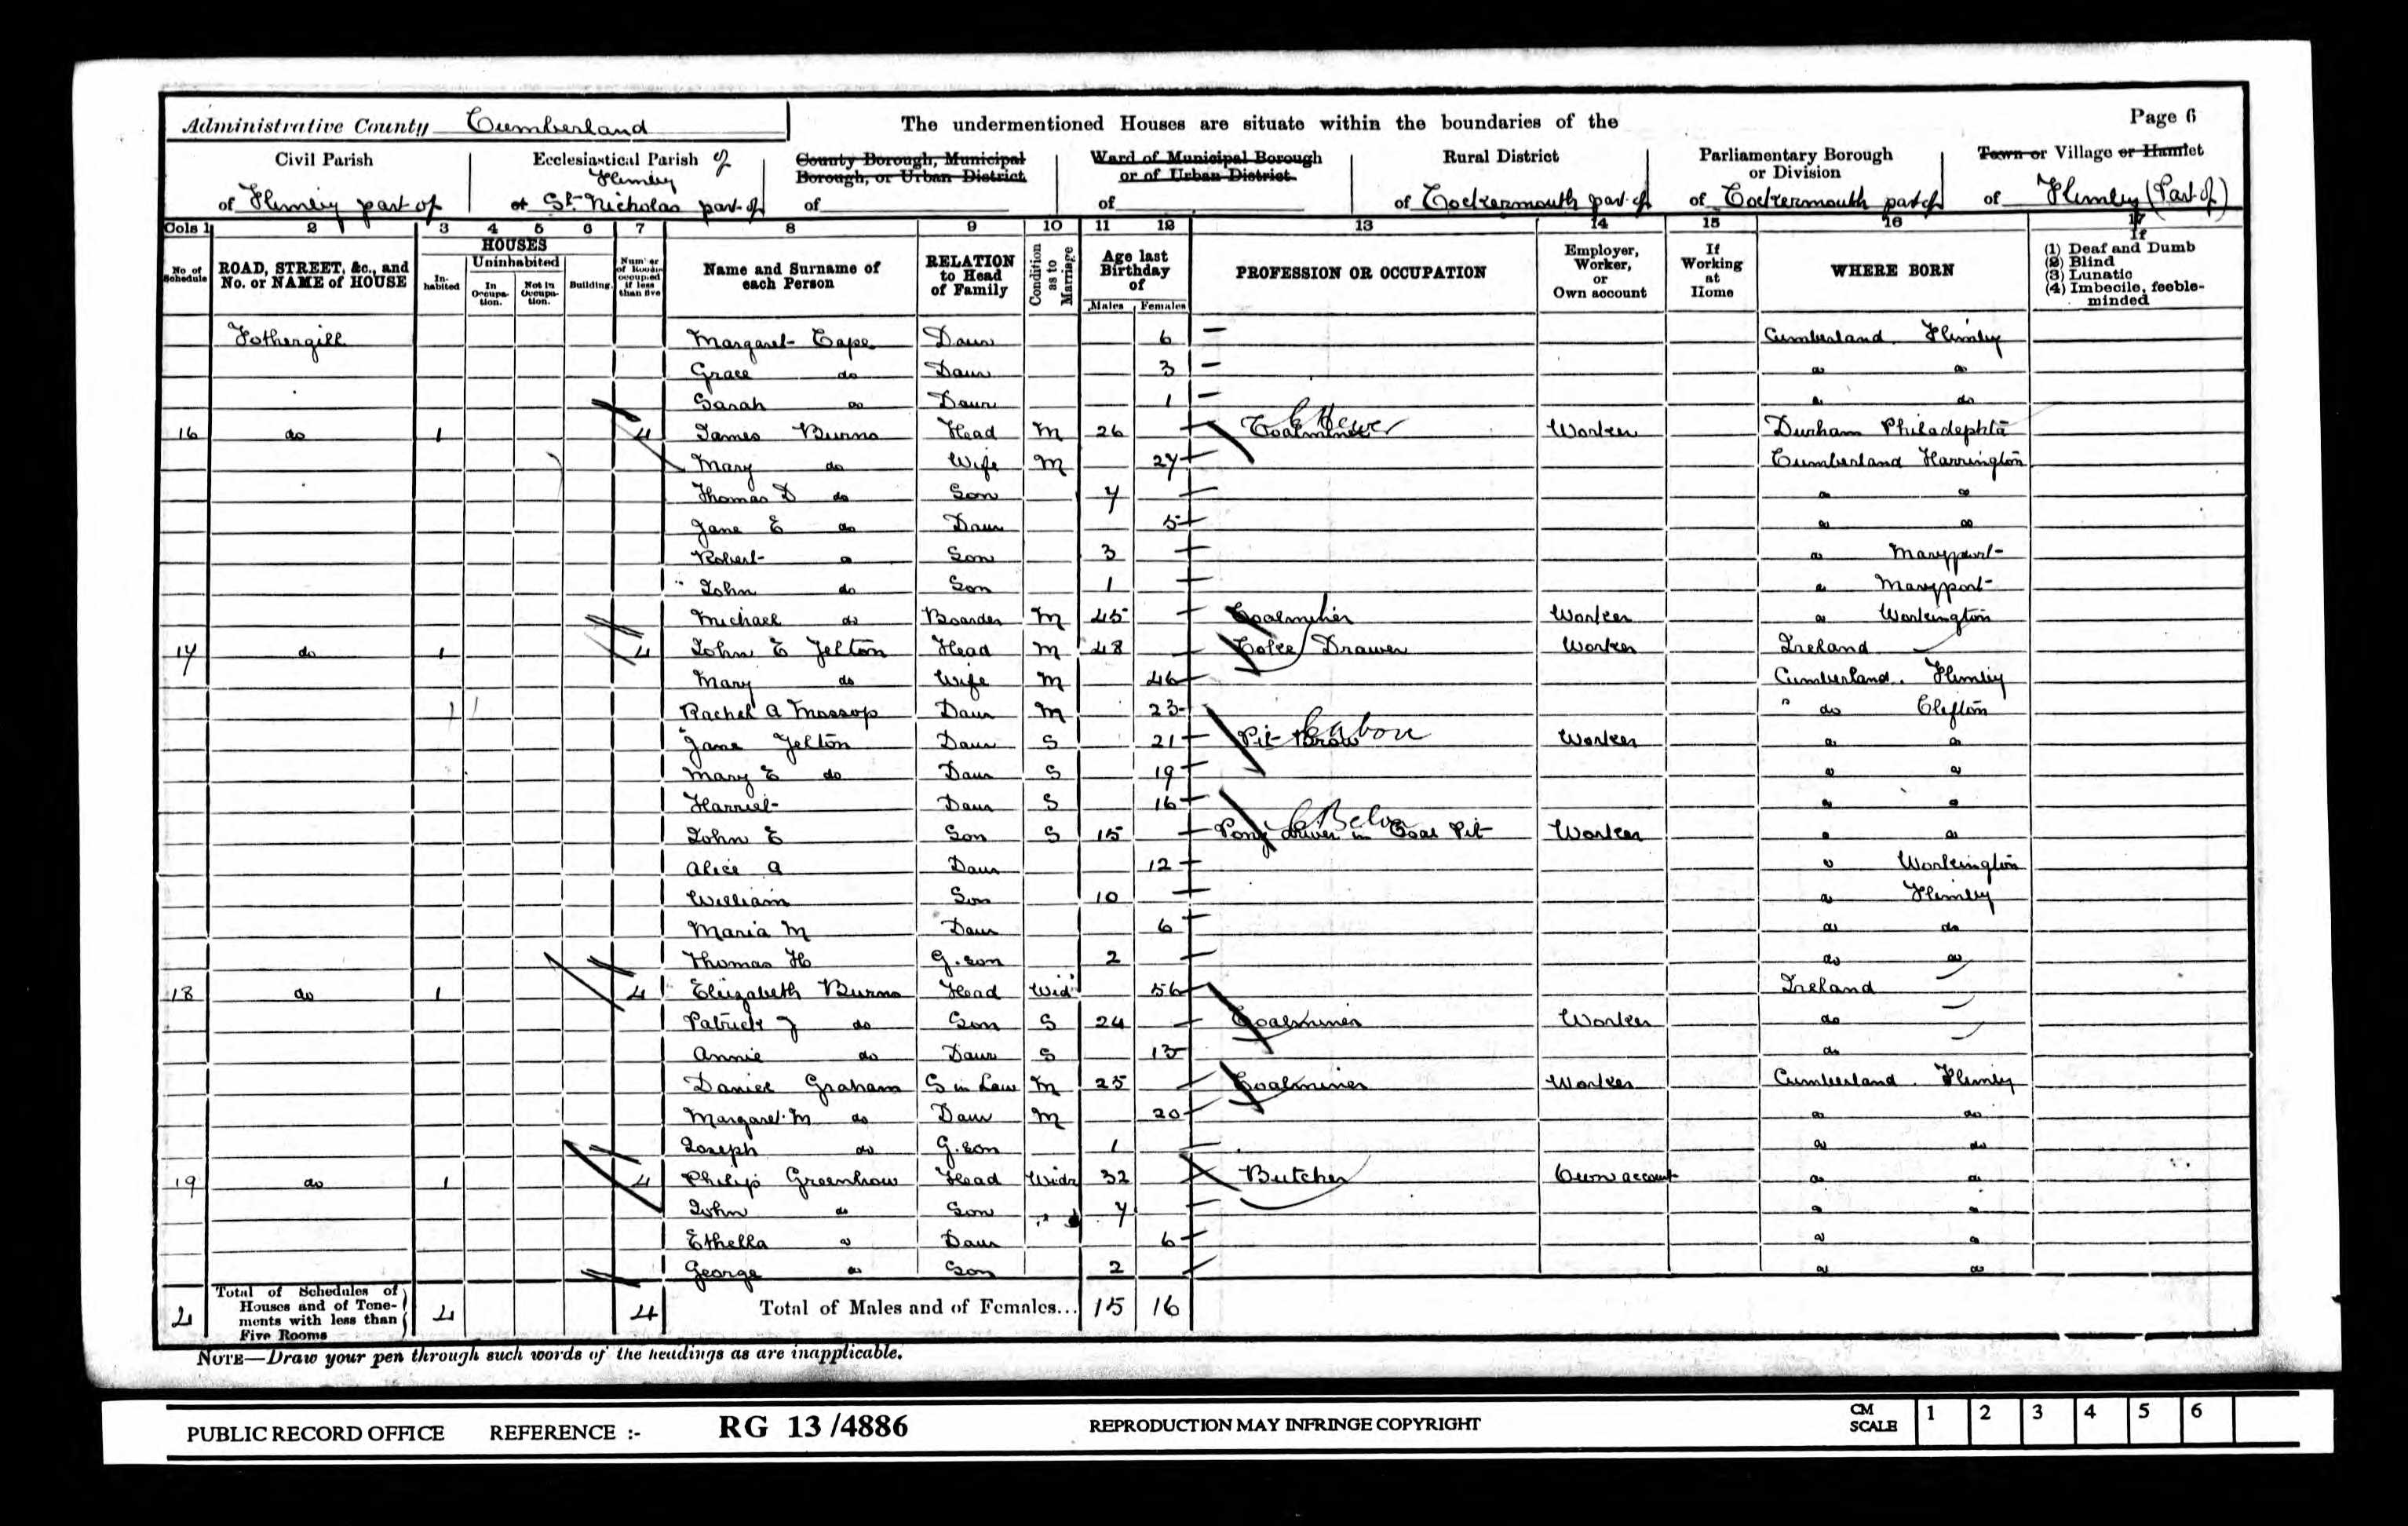 Administrative County Cumberland
The undermentioned Houses are situate within the boundaries of the
Page 6
Civil Parish
of Flimby part of
Ecclesiastical Parish of
Flimby
of St. Nicholas part of
County Borough, Municipal
Borough, or Urban District
of
Ward of Municipal Borough
or of Urban District
of
Rural District
of Cockermouth part of
Parliamentary Borough
or Division
of Cockermouth part of
Town or Village or Hamlet
of Flimby (Part of)
Cols 1 2 3 4 5 6 7 8 9 10 11 12 13 14 15 16 17
No. of Schedule
ROAD, STREET, &c., and No. or NAME of HOUSE
HOUSES
In-habited
Uninhabited
In Occupa-tion.
Not in Occupa-tion.
Building.
Number of Rooms occupied if less than five
Name and Surname of each Person
RELATION to Head of Family
Condition as to Marriage
Age last Birthday of
Males Females
PROFESSION OR OCCUPATION
Employer, Worker, or Own account
If Working at Home
WHERE BORN
If
(1) Deaf and Dumb
(2) Blind
(3) Lunatic
(4) Imbecile, feeble-minded
Fothergill Margaret Cape Daur 6 Cumberland Flimby
Grace do Daur 3 do do
Sarah do Daur 1 do do
16 do 1 4 James Burns Head M 26 Coalminer Hewer Worker Durham Philadephta
Mary do Wife M 27 Cumberland Harrington
Thomas D do Son 7 do do
Jane E do Daur 5 do do
Robert do Son 3 do Maryport
John do Son 1 do Maryport
Michael do Boarder M 45 Coalminer Worker do Workington
17 do 1 4 John E Yelton Head M 48 Coke Drawer Worker Ireland
Mary do Wife M 46 Cumberland. Flimby
Rachel A Mossop Daur M 23 " do Clifton
Jane Yelton Daur S 21 Pit Brow Worker do do
Mary E do Daur S 19 do do
Harriet Daur S 16 do do
John E Son S 15 Pony driver in Coal Pit Worker do do
Alice A Daur 12 do Workington
William Son 10 do Flimby
Maria M Daur 6 do do
Thomas H G. son 2 do do
18 do 1 4 Elizabeth Burns Head Wid 56 Ireland
Patrick J do Son S 24 Coalminer Worker do
Annie do Daur S 13 do
Daniel Graham S in Law M 25 Coalminer Worker Cumberland. Flimby
Margaret M do Daur M 20 do do
Joseph do G. son 1 do do
19 do 1 4 Philip Greenhow Head Widr 32 Butcher Own account do do
John do Son 7 do do
Ethella do Daur 6 do do
George do Son 2 do do
4 Total of Schedules of Houses and of Tene-ments with less than Five Rooms 4 4 Total of Males and of Females... 15 16
NOTE—Draw your pen through such words of the headings as are inapplicable.
PUBLIC RECORD OFFICE REFERENCE :- RG 13/4886 REPRODUCTION MAY INFRINGE COPYRIGHT CM SCALE 1 2 3 4 5 6